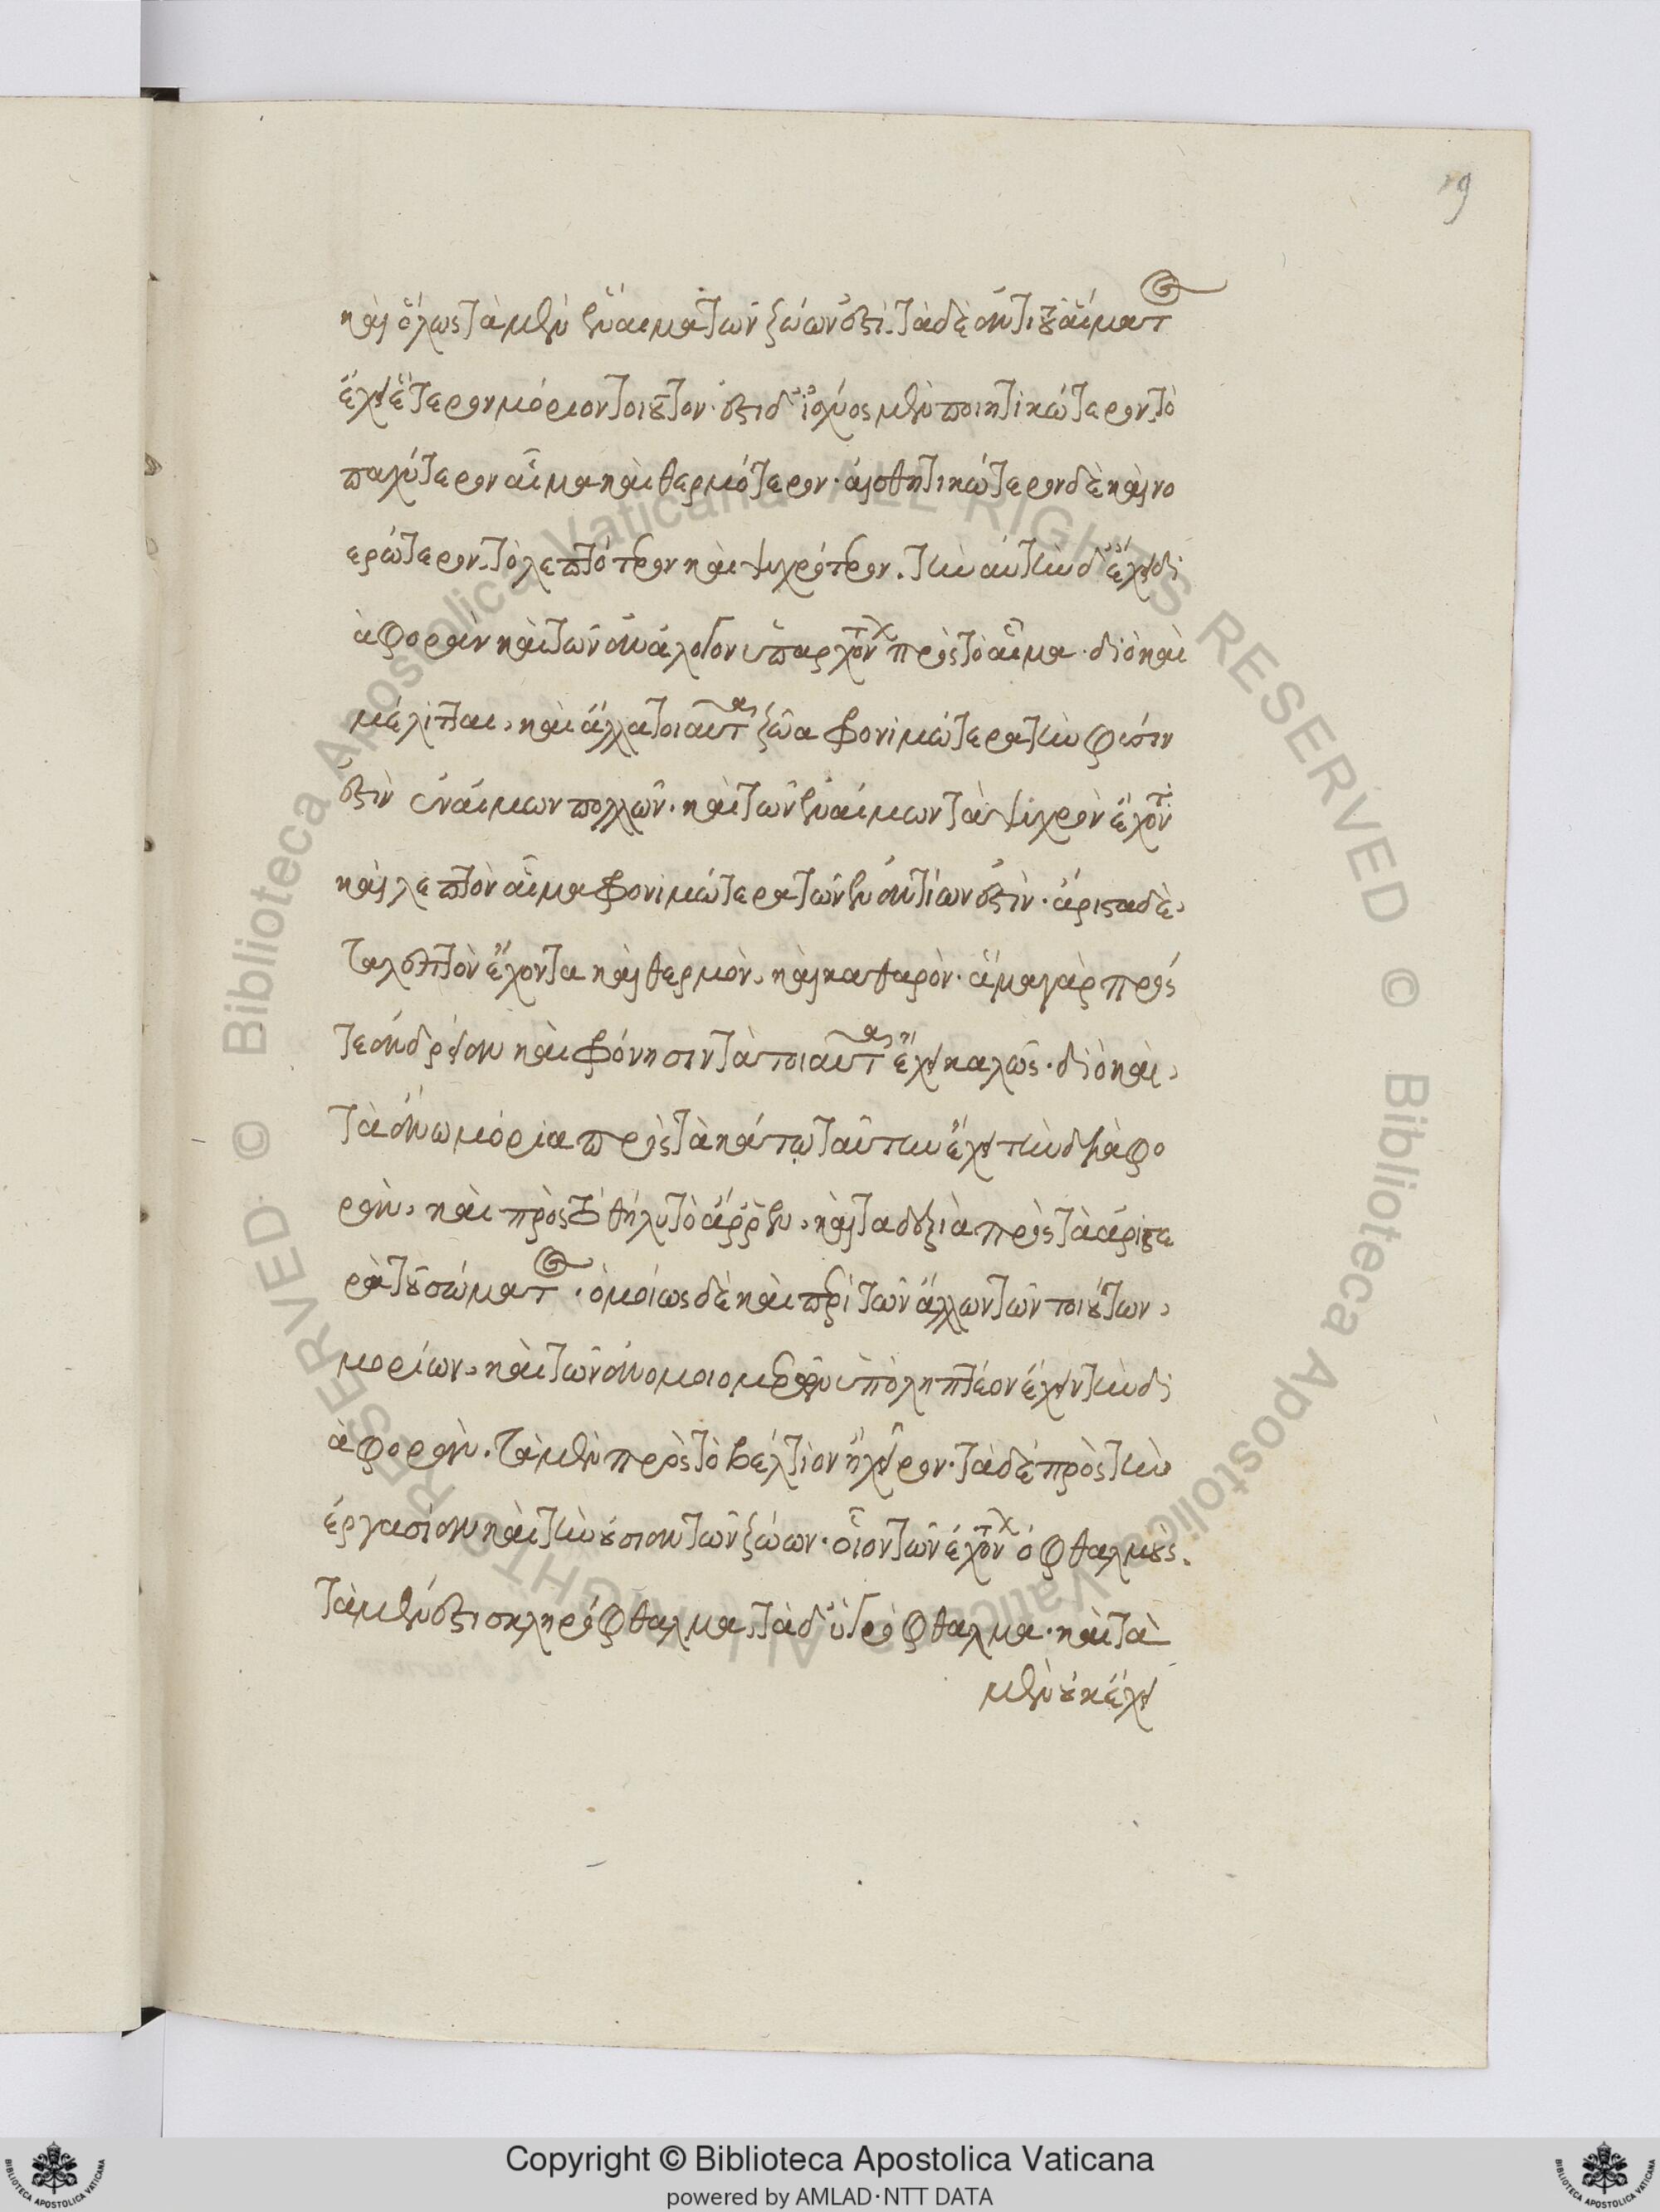 19
καὶ ὅλως τὰ μὲν ἔναιμα τῶν ζώων ἐστί. τὰ δὲ ἀντὶ τοῦ αἵματος
ἔχει ἕτερον μόριον τοιοῦτον. ἔστι δ' ἰσχύος μὲν ποιητικώτερον τὸ
παχύτερον αἷμα καὶ θερμότερον. αἰσθητικώτερον δὲ καὶ νο
ερώτερον. τὸ λεπτότερον καὶ ψυχρότερον. τὴν αὐτὴν δ' ἔχει δι
αφορὰν καὶ τῶν ἀνάλογον ὑπαρχόντων πρὸς τὸ αἷμα. διὸ καὶ
μέλιτται, καὶ ἄλλα τοιαῦτα ζῶα φρονιμώτερα τὴν φύσιν
ἐστὶν ἐναίμων πολλῶν. καὶ τῶν ἐναίμων τὰ ψυχρὸν ἔχοντα
καὶ λεπτὸν αἷμα φρονιμώτερα τῶν ἐναντίων ἐστίν. ἄριστα δὲ,
τὰ λεπτὸν ἔχοντα καὶ θερμὸν, καὶ καθαρόν. ἅμα γὰρ πρός
τε ἀνδρείαν καὶ φρόνησιν τὰ τοιαῦτα ἔχει καλῶς. διὸ καὶ,
τὰ ἄνω μόρια πρὸς τὰ κάτω ταύτην ἔχει τὴν διαφο
ράν, καὶ πρὸς τὸ θῆλυ τὸ ἄρρεν, καὶ τὰ δεξιὰ πρὸς τὰ ἀριστε
ρὰ τοῦ σώματος. ὁμοίως δὲ καὶ περὶ τῶν ἄλλων τῶν τοιούτων,
μορίων, καὶ τῶν ἀνομοιομερῶν ὑποληπτέον ἔχειν τὴν δι
αφοράν. τὰ μὲν πρὸς τὸ βέλτιον ἢ χεῖρον. τὰ δὲ πρὸς τὴν
ἐργασίαν καὶ τὴν οὐσίαν τῶν ζώων. οἷον τῶν ἐχόντων ὀφθαλμούς.
τὰ μέν ἐστι σκληρόφθαλμα, τὰ δ' ὑγρόφθαλμα. καὶ τὰ
μὲν οὐκ ἔχει
Copyright © Biblioteca Apostolica Vaticana
powered by AMLAD·NTT DATA